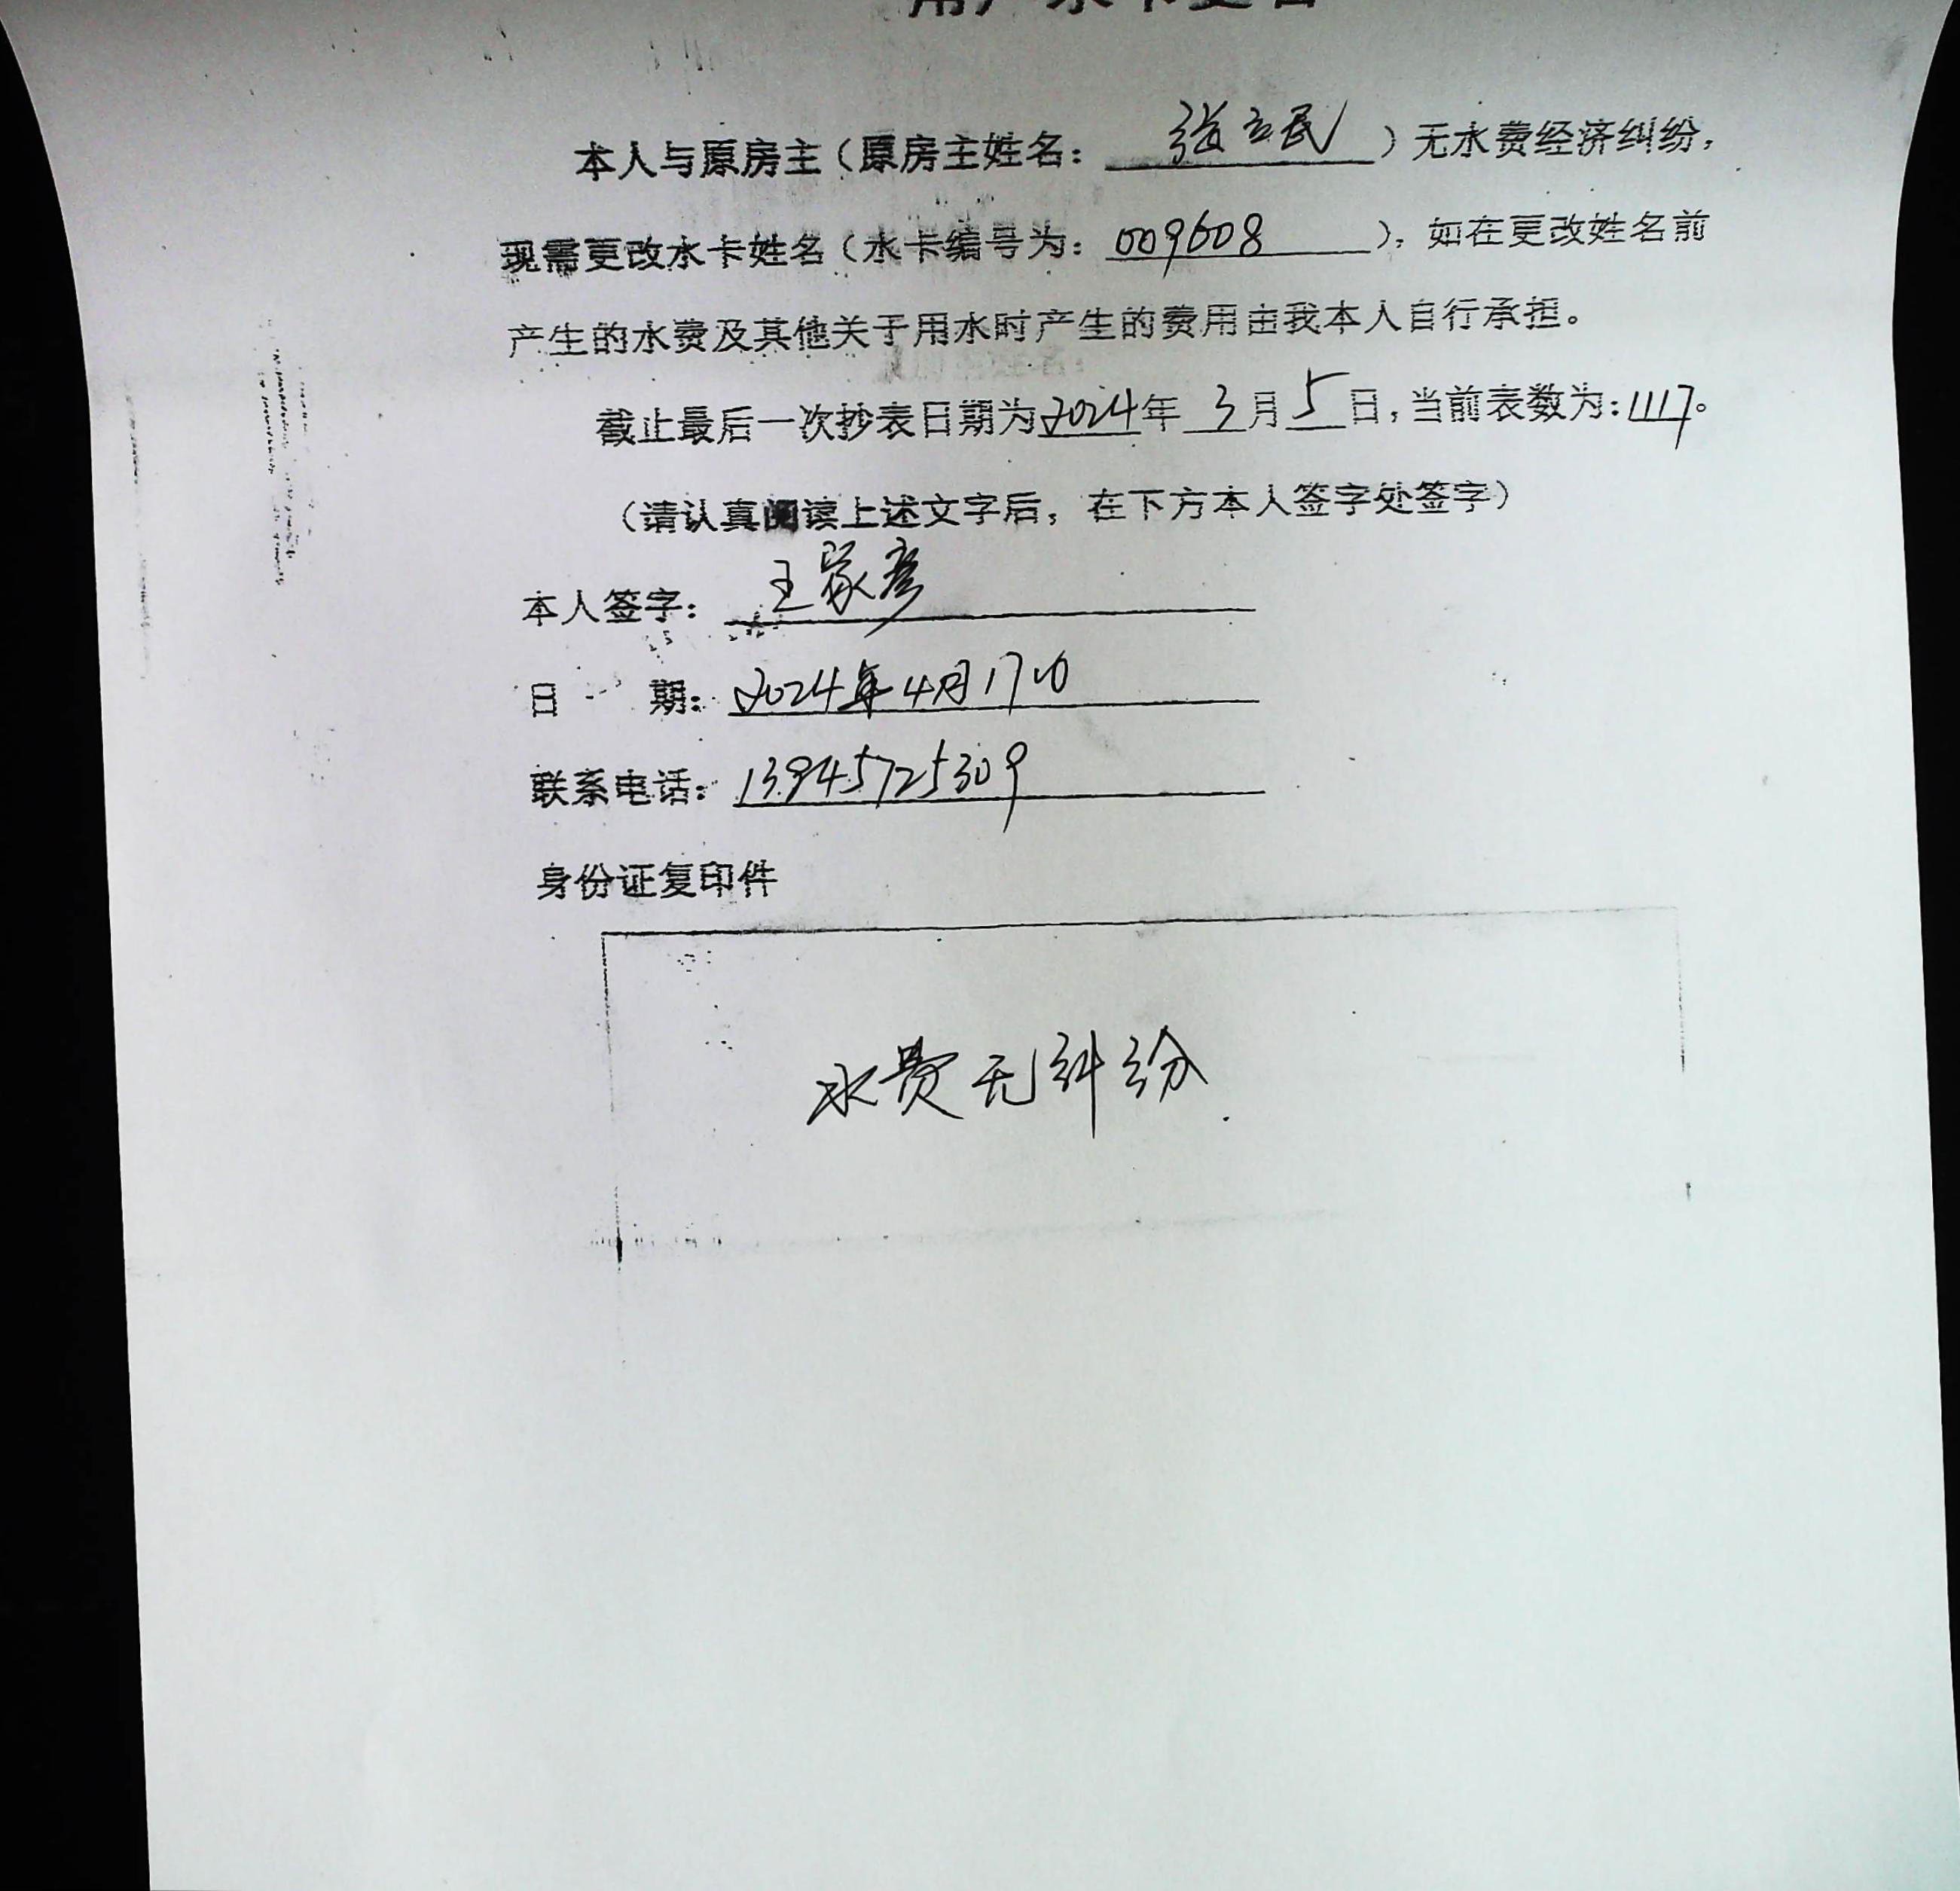 用户水卡更名
本人与原房主（原房主姓名：张立民）无水费经济纠纷，
现需更改水卡姓名（水卡编号为：009608），如在更改姓名前
产生的水费及其他关于用水时产生的费用由我本人自行承担。
截止最后一次抄表日期为2024年3月5日，当前表数为：1117。
（请认真阅读上述文字后，在下方本人签字处签字）
本人签字：王家彦
日 期：2024年4月17日
联系电话：13945725309
身份证复印件
水费无纠纷